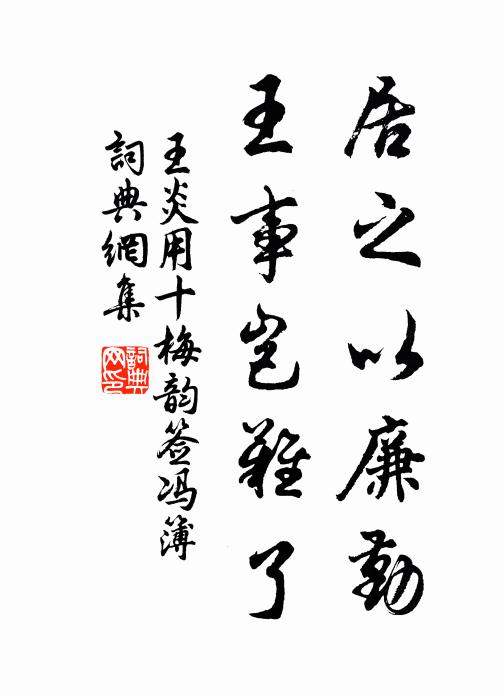 居之以廉勤
王事岂難了
王炎用十梅韵签冯簿
詞典網集
詞典
网印